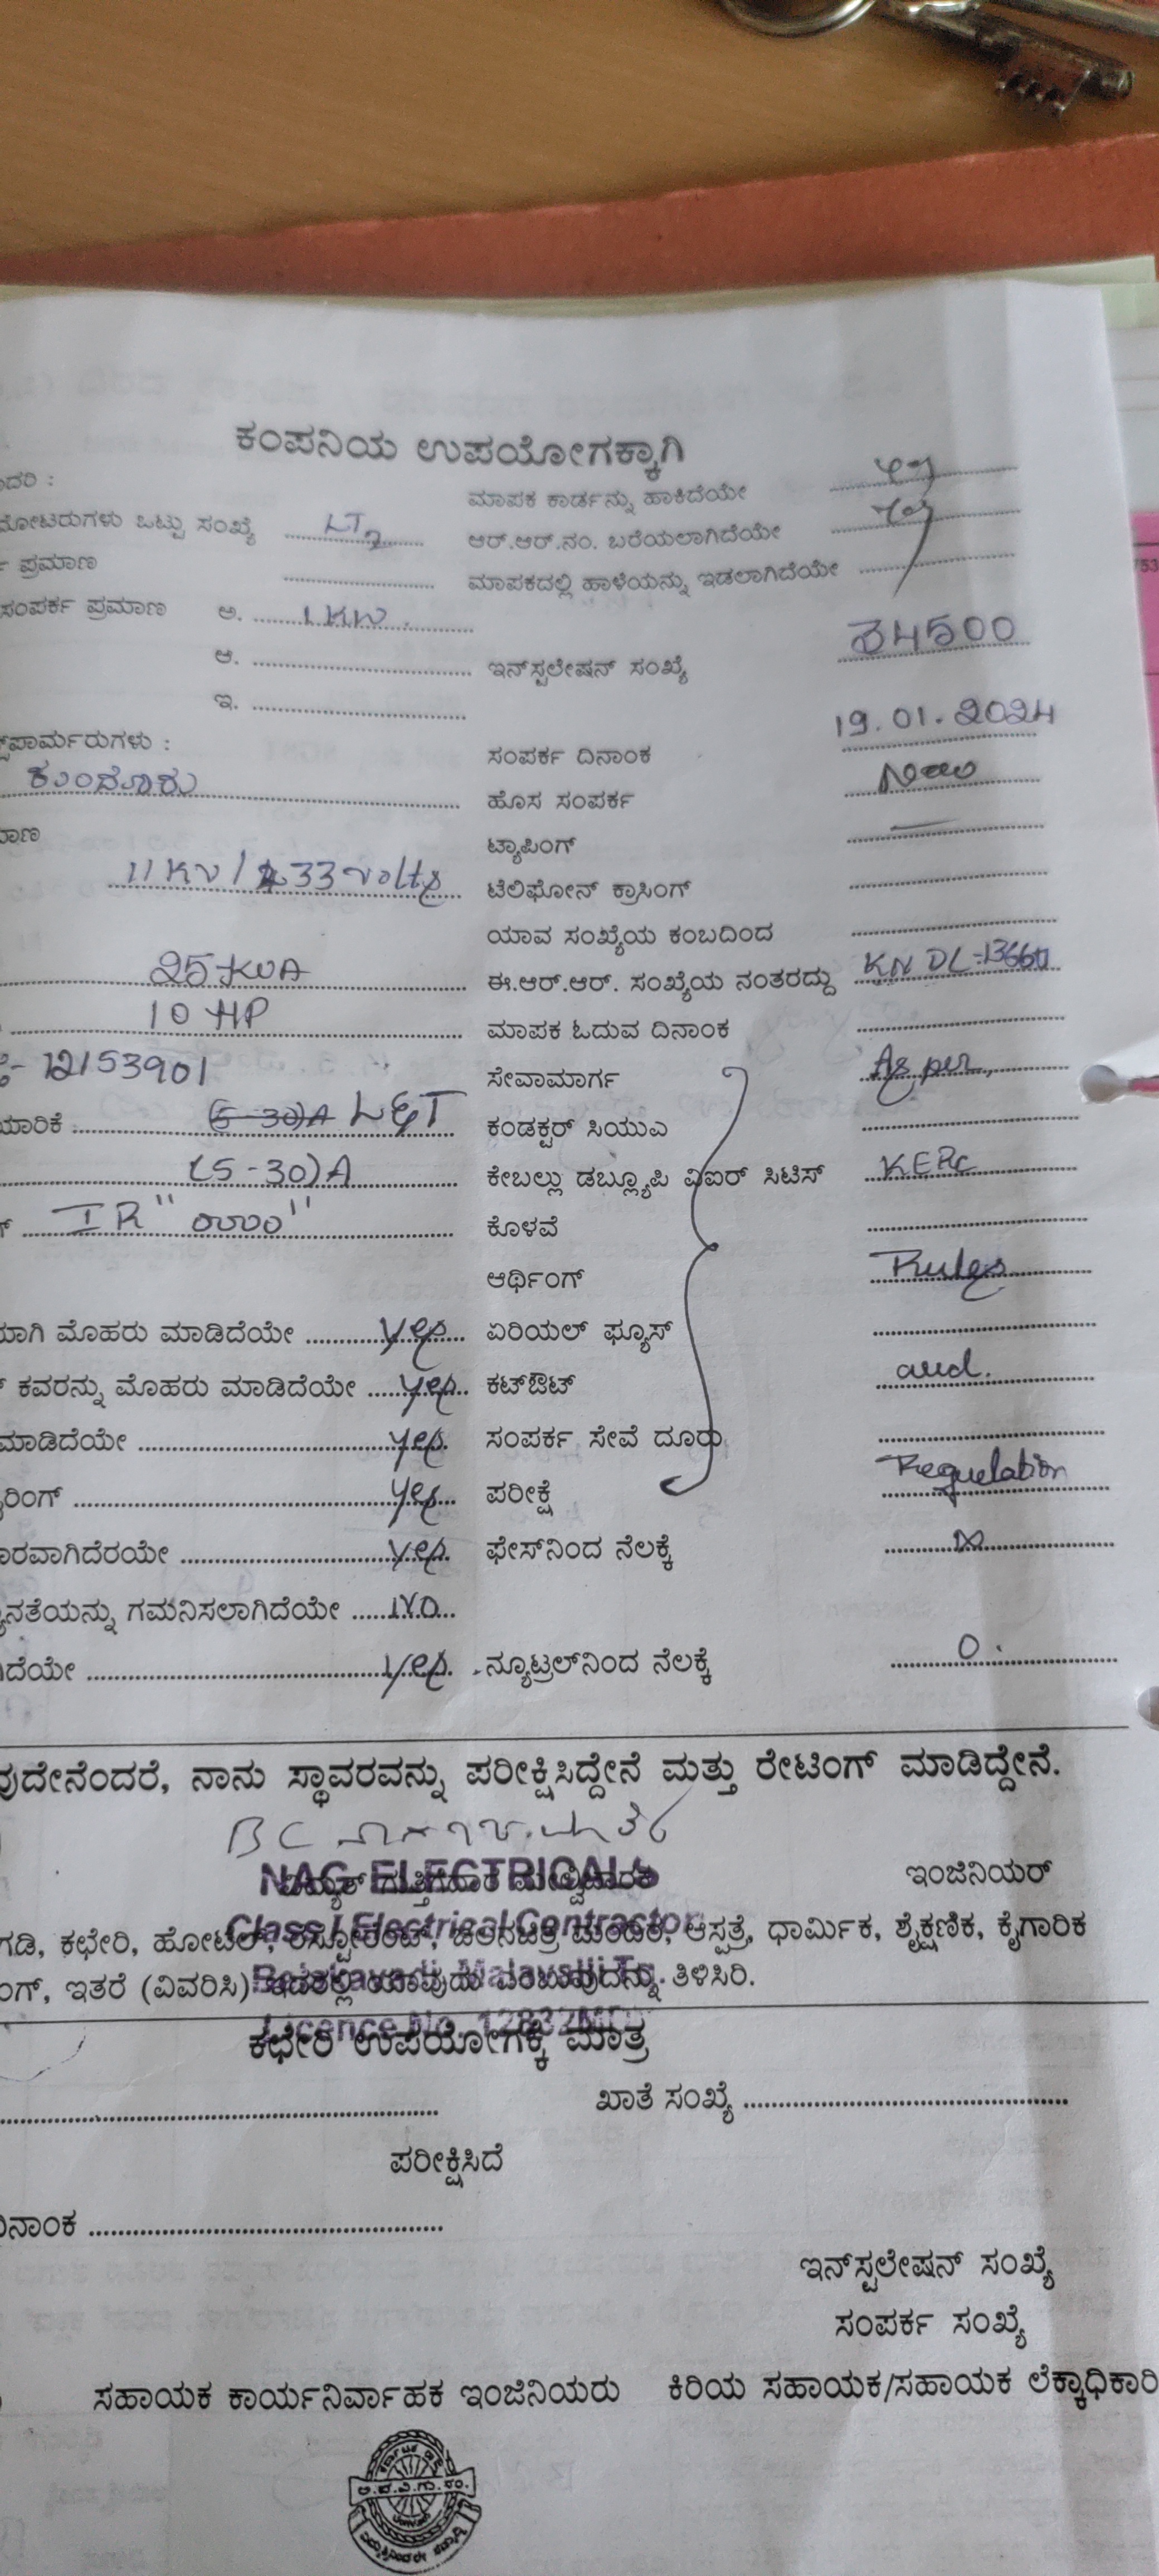 ಕಂಪನಿಯ ಉಪಯೋಗಕ್ಕಾಗಿ
ಮಾಪಕ ಕಾರ್ಡನ್ನು ಹಾಕಿದೆಯೇ
ಒಟ್ಟು ಸಂಖ್ಯೆ LT2 ಆರ್.ಆರ್.ನಂ. ಬರೆಯಲಾಗಿದೆಯೇ yes
ಪ್ರಮಾಣ ಮಾಪಕದಲ್ಲಿ ಹಾಳೆಯನ್ನು ಇಡಲಾಗಿದೆಯೇ
ಸಂಪರ್ಕ ಪ್ರಮಾಣ ಅ. 1 KW.
ಆ. ಇನ್‌ಸ್ಟಲೇಷನ್ ಸಂಖ್ಯೆ 34500
ಇ.
ಸಂಪರ್ಕ ದಿನಾಂಕ 19.01.2024
ಕುಂದೂರು ಹೊಸ ಸಂಪರ್ಕ New
ಟ್ಯಾಪಿಂಗ್ —
11 KV / 433 volts ಟೆಲಿಫೋನ್ ಕ್ರಾಸಿಂಗ್
ಯಾವ ಸಂಖ್ಯೆಯ ಕಂಬದಿಂದ
25 KVA ಈ.ಆರ್.ಆರ್. ಸಂಖ್ಯೆಯ ನಂತರದ್ದು KN DL-13660
10 HP ಮಾಪಕ ಓದುವ ದಿನಾಂಕ
12153901 ಸೇವಾಮಾರ್ಗ As per
L&T ಕಂಡಕ್ಟರ್ ಸಿಯುಎ
(5-30)A ಕೇಬಲ್ಲು ಡಬ್ಲ್ಯೂಪಿ ವಿಐರ್ ಸಿಟಿಸ್ KERC
IR "0000" ಕೊಳವೆ
ಆರ್ಥಿಂಗ್ Rules
ಮೊಹರು ಮಾಡಿದೆಯೇ yes ಏರಿಯಲ್ ಫ್ಯೂಸ್
ಕವರನ್ನು ಮೊಹರು ಮಾಡಿದೆಯೇ yes ಕಟ್‌ಔಟ್ and.
ಮಾಡಿದೆಯೇ yes. ಸಂಪರ್ಕ ಸೇವೆ ದೂರು
yes ಪರೀಕ್ಷೆ Regulation
yes. ಫೇಸ್‌ನಿಂದ ನೆಲಕ್ಕೆ ∞
ಗಮನಿಸಲಾಗಿದೆಯೇ NO
yes. ನ್ಯೂಟ್ರಲ್‌ನಿಂದ ನೆಲಕ್ಕೆ 0.
ನಾನು ಸ್ಥಾವರವನ್ನು ಪರೀಕ್ಷಿಸಿದ್ದೇನೆ ಮತ್ತು ರೇಟಿಂಗ್ ಮಾಡಿದ್ದೇನೆ.
NAG ELECTRICALS
ಇಂಜಿನಿಯರ್
Class I Electrical Contractor
ಕಛೇರಿ, ಹೋಟೆಲ್, ಆಸ್ಪತ್ರೆ, ಧಾರ್ಮಿಕ, ಶೈಕ್ಷಣಿಕ, ಕೈಗಾರಿಕ
ಇತರೆ (ವಿವರಿಸಿ) ಇದರಲ್ಲಿ ಯಾವುದು ಎಂಬುವುದನ್ನು ತಿಳಿಸಿರಿ.
Licence No.
ಕಛೇರಿ ಉಪಯೋಗಕ್ಕೆ ಮಾತ್ರ
ಖಾತೆ ಸಂಖ್ಯೆ
ಪರೀಕ್ಷಿಸಿದೆ
ದಿನಾಂಕ
ಇನ್‌ಸ್ಟಲೇಷನ್ ಸಂಖ್ಯೆ
ಸಂಪರ್ಕ ಸಂಖ್ಯೆ
ಸಹಾಯಕ ಕಾರ್ಯನಿರ್ವಾಹಕ ಇಂಜಿನಿಯರು ಕಿರಿಯ ಸಹಾಯಕ/ಸಹಾಯಕ ಲೆಕ್ಕಾಧಿಕಾರಿ